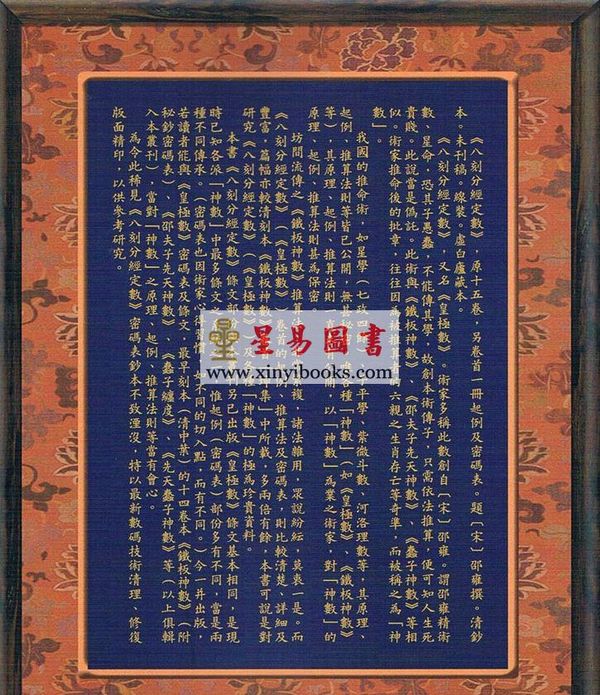 《八刻分經定數》，原十五卷，另卷首一冊起例及密碼表。題〔宋〕邵雍撰。清鈔
本。未刊稿。線裝。虛白廬藏本。
《八刻分經定數》，又名《皇極數》。術家多稱此數創自〔宋〕邵雍。謂邵雍精術
數、星命，恐其子愚蠢，不能傳其學，故創本術傳子，只需依法推算，便可知人生死
貴賤。此說當是偽託。此術與《鐵板神數》、《邵夫子先天神數》、《蠢子神數》等相
似。術家推命後的批章，往往因為被推算 六親之生肖存亡等奇準，而被稱之為「神
數」。
我國的推命術，如星學（七政四餘）、子平學、紫微斗數、河洛理數等，其原理、
起例、推算法則等皆已公開，無甚 各種「神數」（如《皇極數》、《鐵板神數》
等），其原理、起例、推算法則， 以「神數」為業之術家，對「神數」的
原理、起例、推算法則甚為保密。
坊間流傳之《鐵板神數》推算法 複，諸法雜用，眾說紛紜，莫衷一是。而
《八刻分經定數》（《皇極數》）卷首的 推算法及密碼表，則比較清楚、詳細及
豐富，篇幅亦較清刻本《鐵板神數》 集」中所載，多兩倍有餘，本書可說是對
研究《八刻分經定數》（《皇極數》）及各 「神數」的極為珍貴資料。
本書《八刻分經定數》條文部 另已出版《皇極數》條文基本相同，是現
時已知各派「神數」中最多條文之 惟起例（密碼表）部份多有不同，當是兩
種不同傳承。（密碼表也因術家 同的切入點，而有不同。）今一并出版，
若讀者能與《皇極數》密碼表及條文、最早刻本（清中葉）的十四卷本《鐵板神數》（附
秘鈔密碼表）、《邵夫子先天神數》、《蠢子纏度》、《先天蠢子神數》等（以上俱輯
入本叢刊），當對「神數」之原理、起例、推算法則等當有會心。
為令此稀見《八刻分經定數》密碼表鈔本不致湮沒，特以最新數碼技術清理、修復
版面精印，以供參考研究。
星易圖書
www.xinyibooks.com